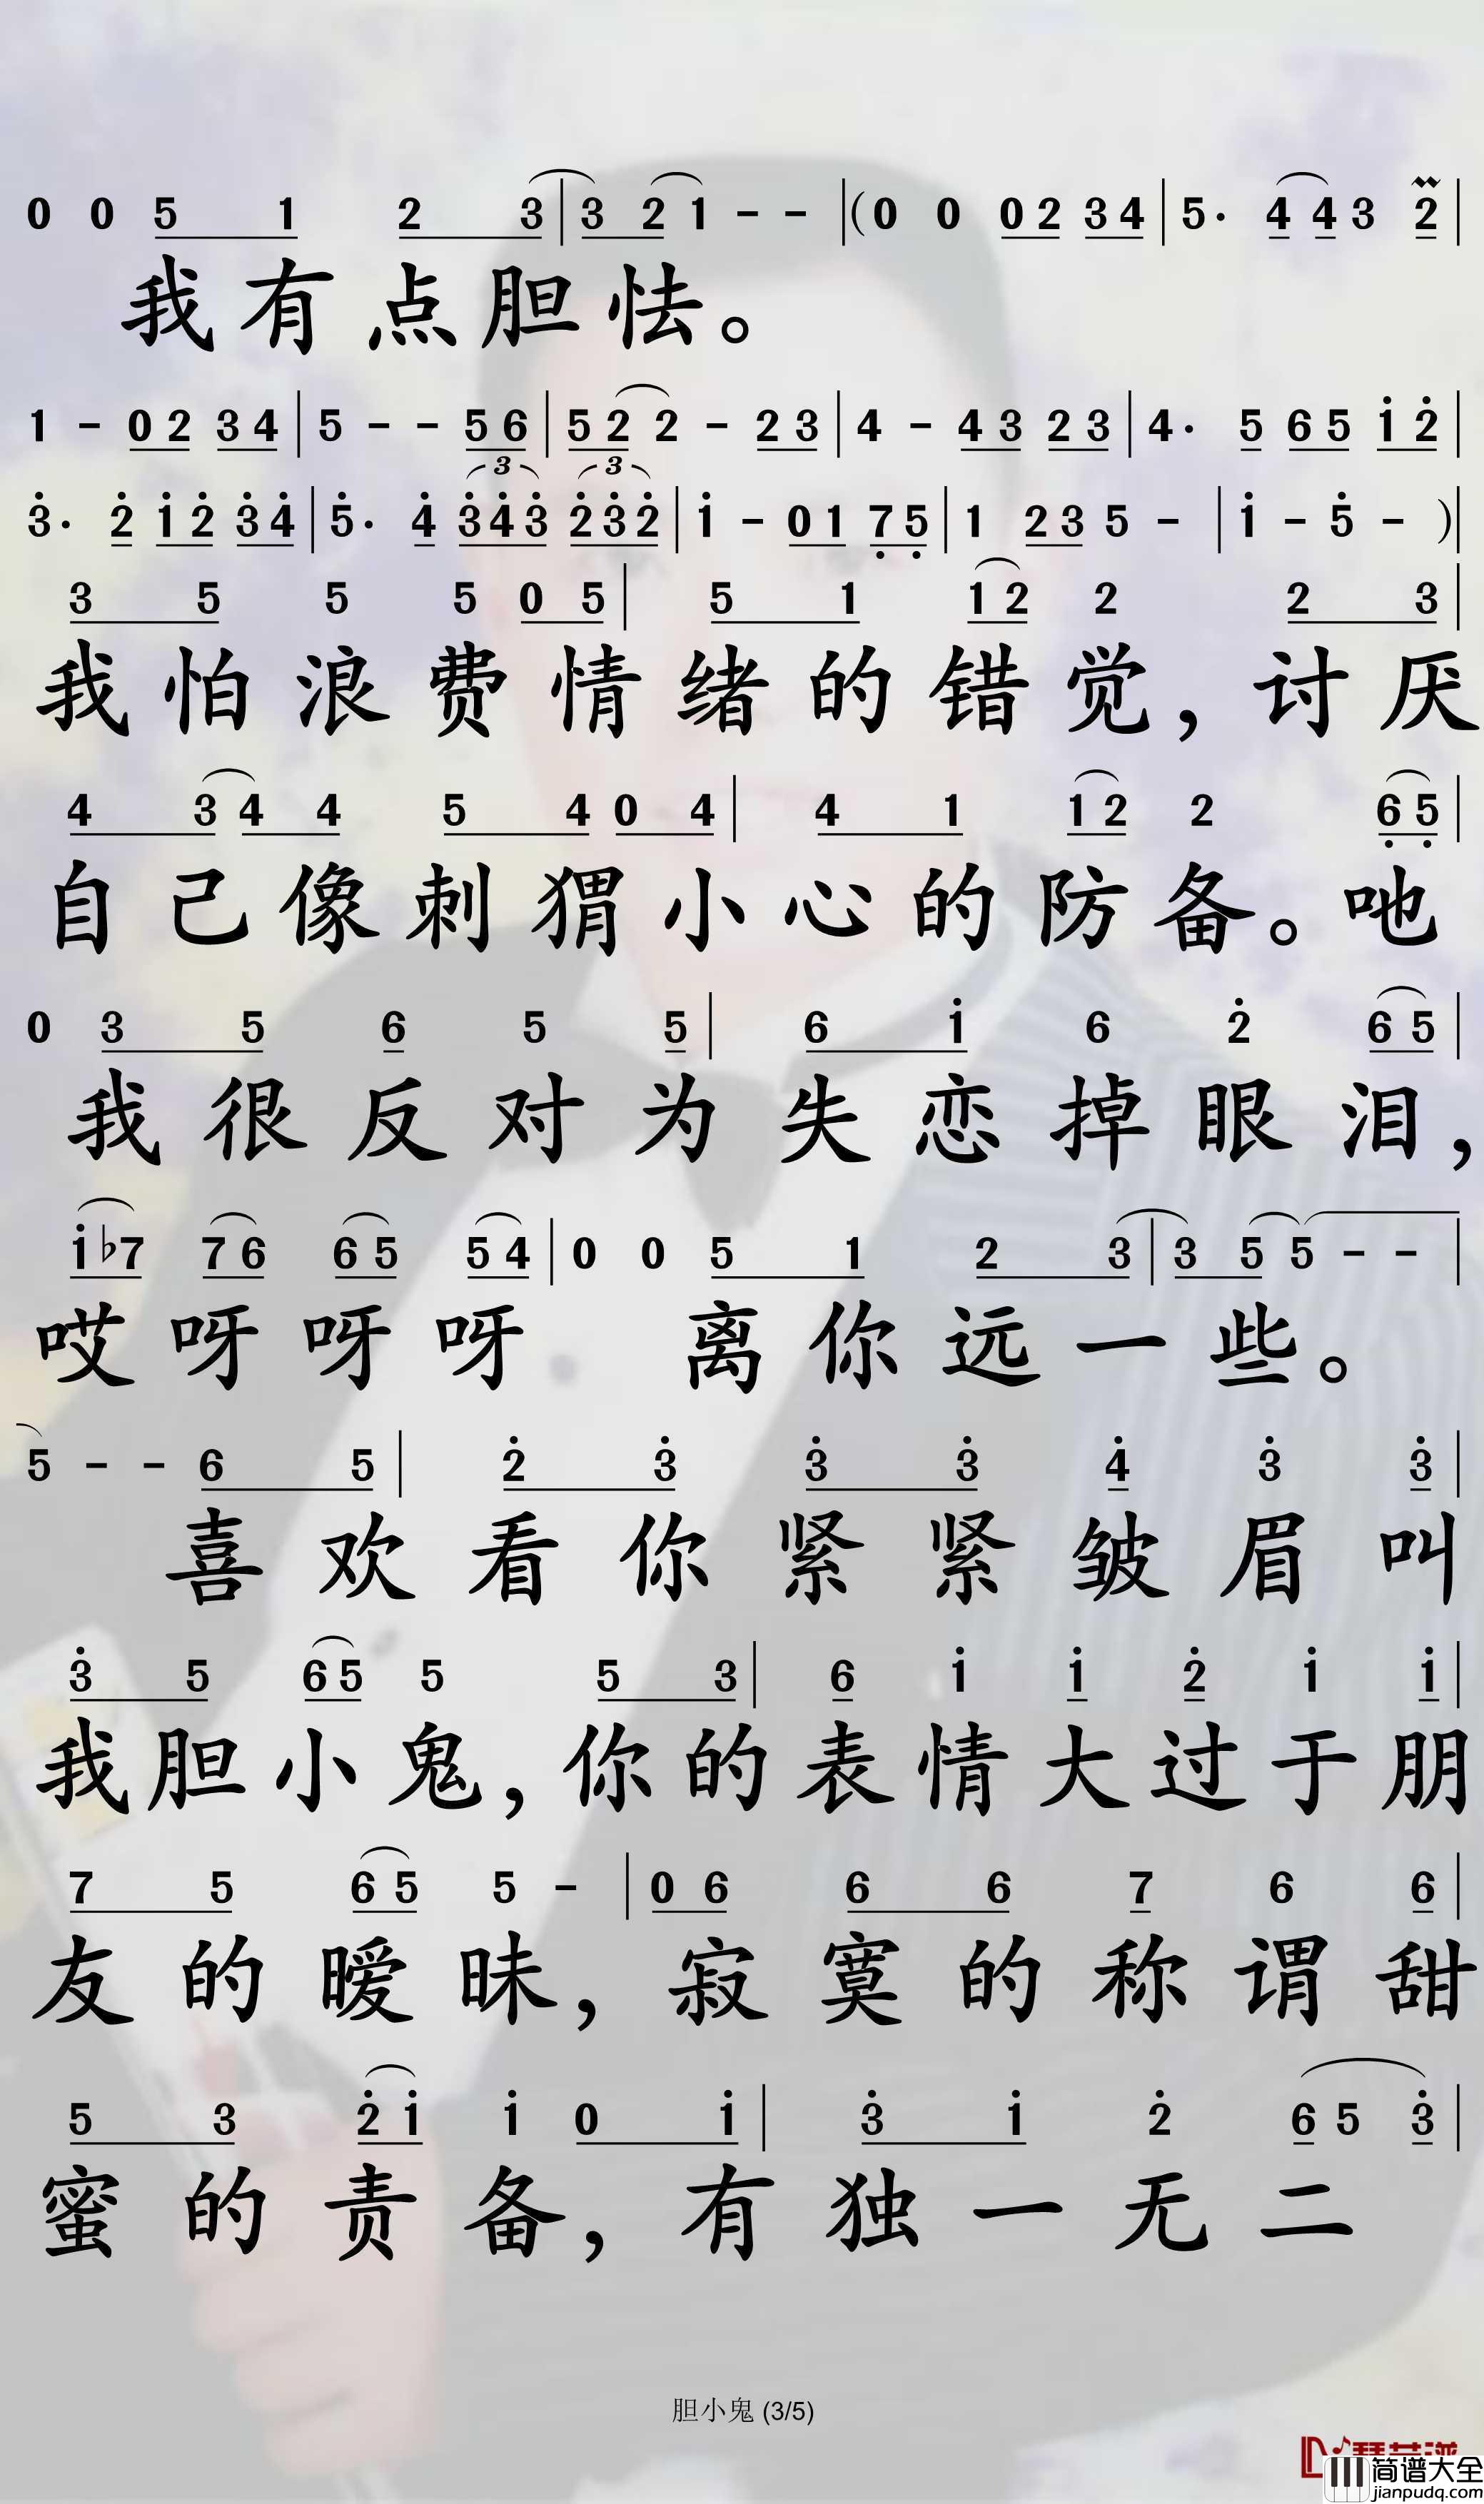 0 0 5 1 2 3 | 3 2 1 - - | ( 0 0 0 2 3 4 | 5 · 4 4 3 2 |
我有点胆怯。
1 - 0 2 3 4 | 5 - - 5 6 | 5 2 2 - 2 3 | 4 - 4 3 2 3 | 4 · 5 6 5 1 2 |
3 · 2 1 2 3 4 | 5 · 4 3 4 3 2 3 2 | 1 - 0 1 7 5 | 1 2 3 5 - | 1 - 5 - ) |
3 5 5 5 0 5 | 5 1 1 2 2 2 3 |
我怕浪费情绪的错觉，讨厌
4 3 4 4 5 4 0 4 | 4 1 1 2 2 6 5 |
自己像刺猬小心的防备。吔
0 3 5 6 5 5 | 6 1 6 2 6 5 |
我很反对为失恋掉眼泪，
1 ♭7 7 6 6 5 5 4 | 0 0 5 1 2 3 | 3 5 5 - - |
哎呀呀呀 离你远一些。
5 - - 6 5 | 2 3 3 3 4 3 3 |
喜欢看你紧紧皱眉叫
3 5 6 5 5 5 3 | 6 1 1 2 1 1 |
我胆小鬼，你的表情大过于朋
7 5 6 5 5 - | 0 6 6 6 7 6 6 |
友的暧昧，寂寞的称谓甜
5 3 2 1 1 0 1 | 3 1 2 6 5 3 |
蜜的责备，有独一无二
胆小鬼 (3/5)
简谱大全
jianpudq.com